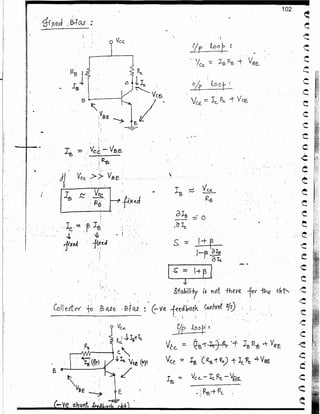 102
Fixed Bias :
Vcc
RB
IB
B
C
Rc
Ic
VCE
VBE
E
i/p loop :
Vcc = IB RB + VBE
o/p loop :
Vcc = Ic Rc + VCE
IB = Vcc - VBE
RB
if Vcc >> VBE
IB ≈ Vcc
RB
→ fixed
Ic = β IB
fixed fixed
IB ≈ Vcc
RB
∂IB
∂Ic
= 0
S = 1+β
1-β ∂IB
∂Ic
S = 1+β
Stability is not there for the ckt
Collector to Base Bias : (-ve feedback Control)
Vcc
Rc
IB+Ic
RB
IB
C
Ic
VCE
B
VBE
E
(-ve shunt feedback ckt)
i/p loop :
Vcc = (IB+Ic) Rc + IB RB + VBE
Vcc = IB (RB + Rc) + Ic Rc + VBE
IB = Vcc - Ic Rc - VBE
RB + Rc